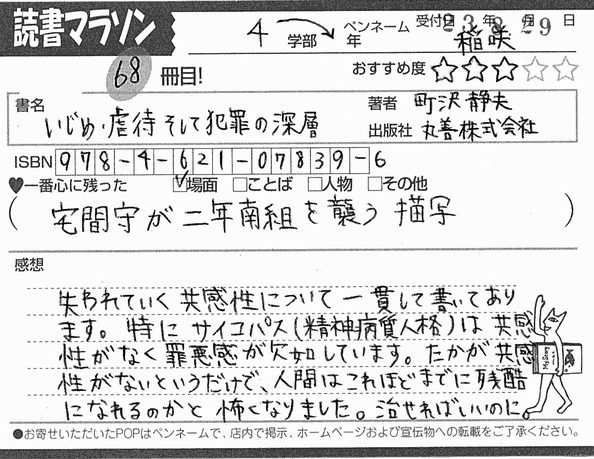 読書マラソン
4 学部 年 ペンネーム 稲咲
受付日 23年8月29日
68 冊目!
おすすめ度 ☆☆☆☆☆
書名 いじめ・虐待そして犯罪の深層
著者 町沢静夫
出版社 丸善株式会社
ISBN 978-4-621-07839-6
♥一番心に残った ☑場面 □ことば □人物 □その他
(宅間守が二年南組を襲う描写)
感想
失われていく共感性について一貫して書いてあり
ます。特にサイコパス(精神病質人格)は共感
性がなく罪悪感が欠如しています。たかが共感
性がないというだけで、人間はこれほどまでに残酷
になれるのかと怖くなりました。治せればいいのに。
●お寄せいただいたPOPはペンネームで、店内で掲示、ホームページおよび宣伝物への転載をご了承ください。